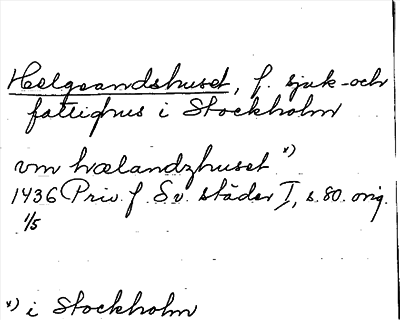 Helgeandshuset, f. sjuk- och
fattighus i Stockholm
vm hælandzhuset x)
1436 Priv. f. Sv. städer I, s. 80. orig.
1/5
x) i Stockholm